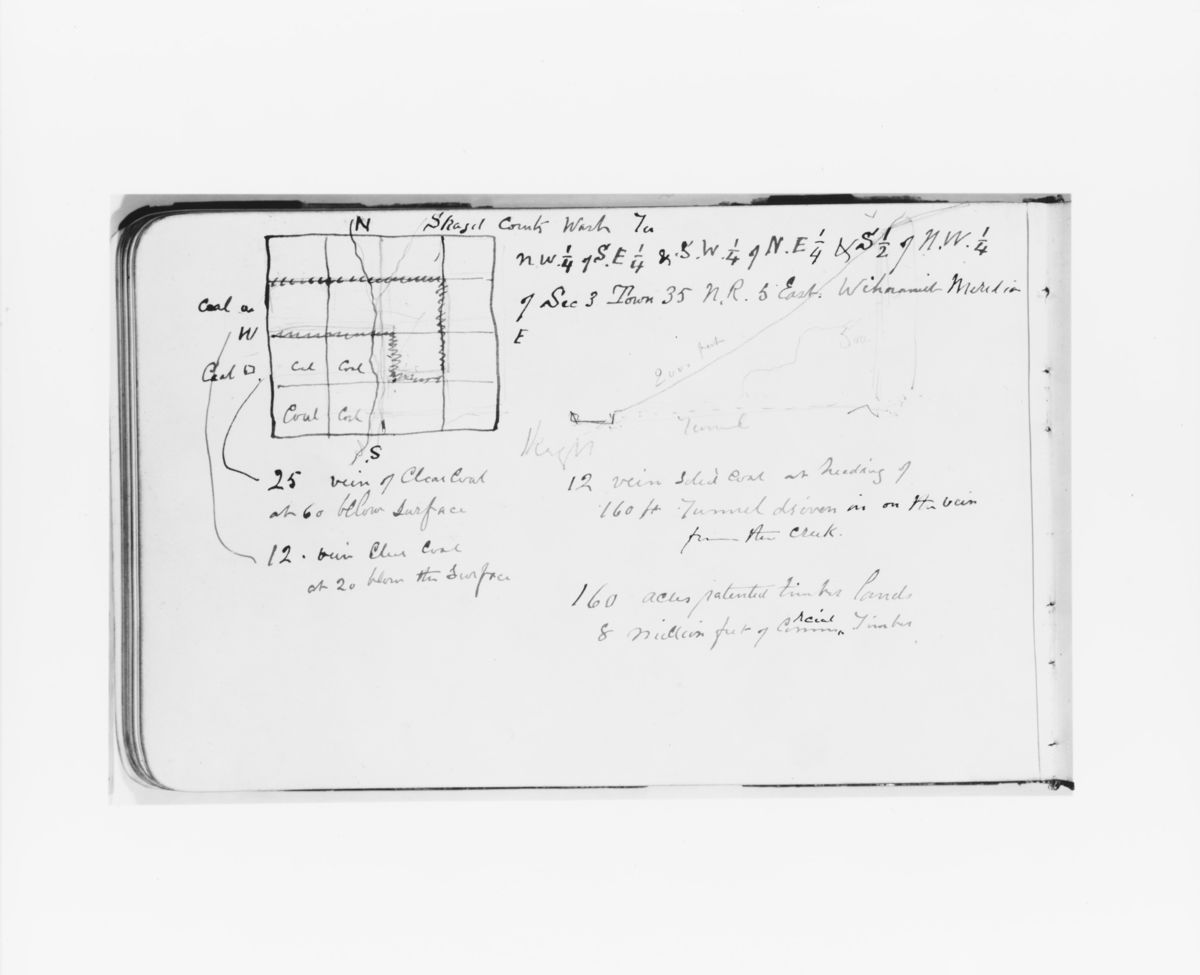 N
Skagit County Wash Ter
N W. 1/4 of S. E 1/4 & S. W. 1/4 of N. E 1/4 & S 1/2 of N. W. 1/4
of Sec 3 Town 35 N. R. 5 East. Meridian
Coal
W
E
Coal
Col Coal
Coal Coal
S
2000 feet
500
Tunnel
Height
25 vein of Clear Coal
at 60 below surface
12 . vein Clear Coal
at 20 below the Surface
12 vein Solid Coal at heading of
160 ft Tunnel driven in on the vein
from the creek.
160 acres patented timber lands
8 million feet of Commercial Timber